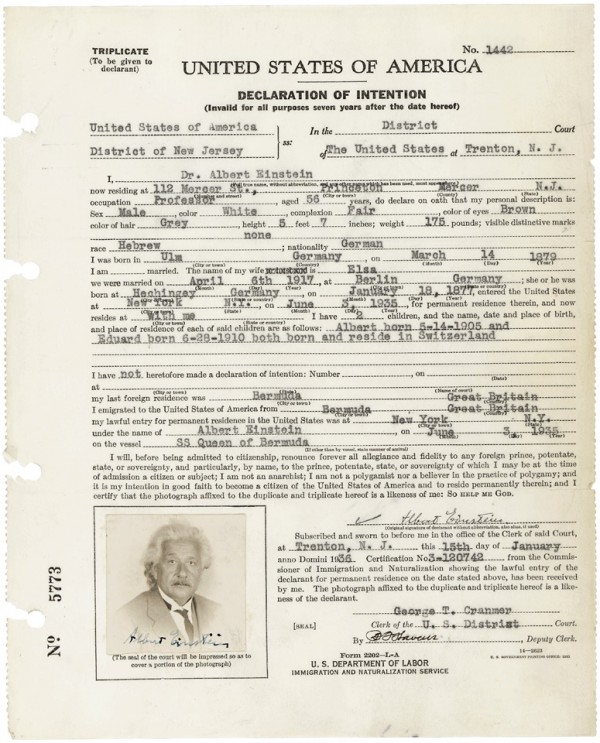 TRIPLICATE
(To be given to
declarant)
No. 1442
UNITED STATES OF AMERICA
DECLARATION OF INTENTION
(Invalid for all purposes seven years after the date hereof)
United States of America
District of New Jersey
ss:
In the District Court
of The United States at Trenton, N. J.
I, Dr. Albert Einstein
now residing at 112 Mercer St., Princeton Mercer N.J.
occupation Professor, aged 56 years, do declare on oath that my personal description is:
Sex Male, color White, complexion Fair, color of eyes Brown
color of hair Grey, height 5 feet 7 inches; weight 175 pounds; visible distinctive marks
none
race Hebrew; nationality German
I was born in Ulm Germany, on March 14 1879
I am married. The name of my wife is Elsa
we were married on April 6th 1917, at Berlin Germany; she or he was
born at Hechingen Germany, on January 18, 1877, entered the United States
at New York N.Y., on June 3, 1935, for permanent residence therein, and now
resides at With me. I have 2 children, and the name, date and place of birth,
and place of residence of each of said children are as follows: Albert born 5-14-1905 and
Eduard born 6-28-1910 both born and reside in Switzerland
I have not heretofore made a declaration of intention: Number, on
at
my last foreign residence was Bermuda Great Britain
I emigrated to the United States of America from Bermuda Great Britain
my lawful entry for permanent residence in the United States was at New York N.Y.
under the name of Albert Einstein, on June 3, 1935
on the vessel SS Queen of Bermuda
I will, before being admitted to citizenship, renounce forever all allegiance and fidelity to any foreign prince, potentate,
state, or sovereignty, and particularly, by name, to the prince, potentate, state, or sovereignty of which I may be at the time
of admission a citizen or subject; I am not an anarchist; I am not a polygamist nor a believer in the practice of polygamy; and
it is my intention in good faith to become a citizen of the United States of America and to reside permanently therein; and I
certify that the photograph affixed to the duplicate and triplicate hereof is a likeness of me: SO HELP ME GOD.
Albert Einstein
(Original signature of declarant without abbreviation, also alias, if used)
Subscribed and sworn to before me in the office of the Clerk of said Court,
at Trenton, N. J. this 15th day of January
anno Domini 1936. Certification No 3-120742 from the Commis-
sioner of Immigration and Naturalization showing the lawful entry of the
declarant for permanent residence on the date stated above, has been received
by me. The photograph affixed to the duplicate and triplicate hereof is a like-
ness of the declarant.
George T. Cranmer
[SEAL] Clerk of the U. S. District Court.
By, Deputy Clerk.
Albert Einstein
(The seal of the court will be impressed so as to
cover a portion of the photograph)
Form 2202-L-A
U. S. DEPARTMENT OF LABOR
IMMIGRATION AND NATURALIZATION SERVICE
14-2623
No 5773